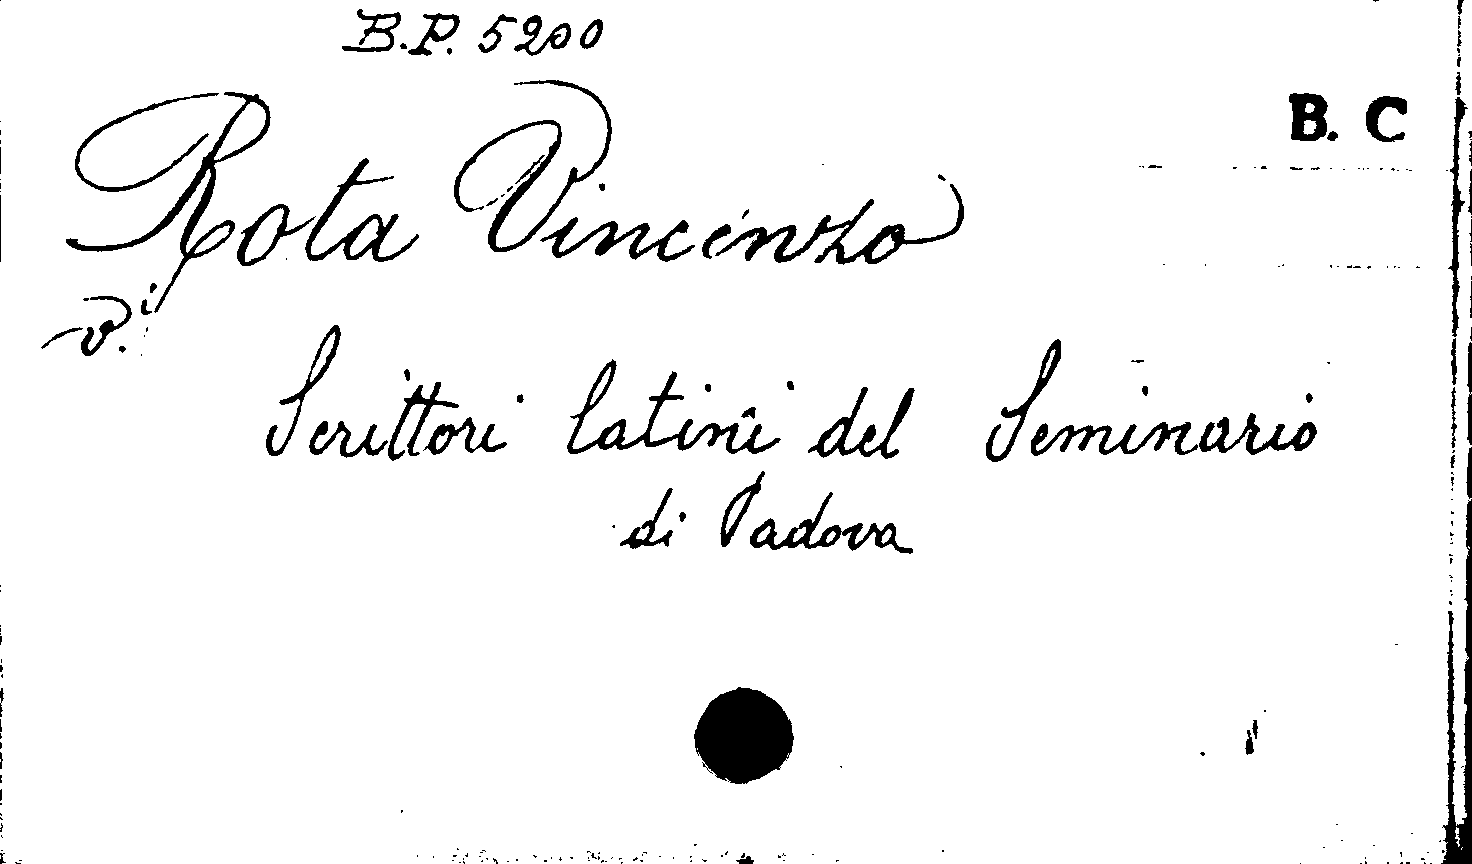 B.P. 5200
B. C
Rota Vincenzo
v.i
Scrittori latini del Seminario
di Padova